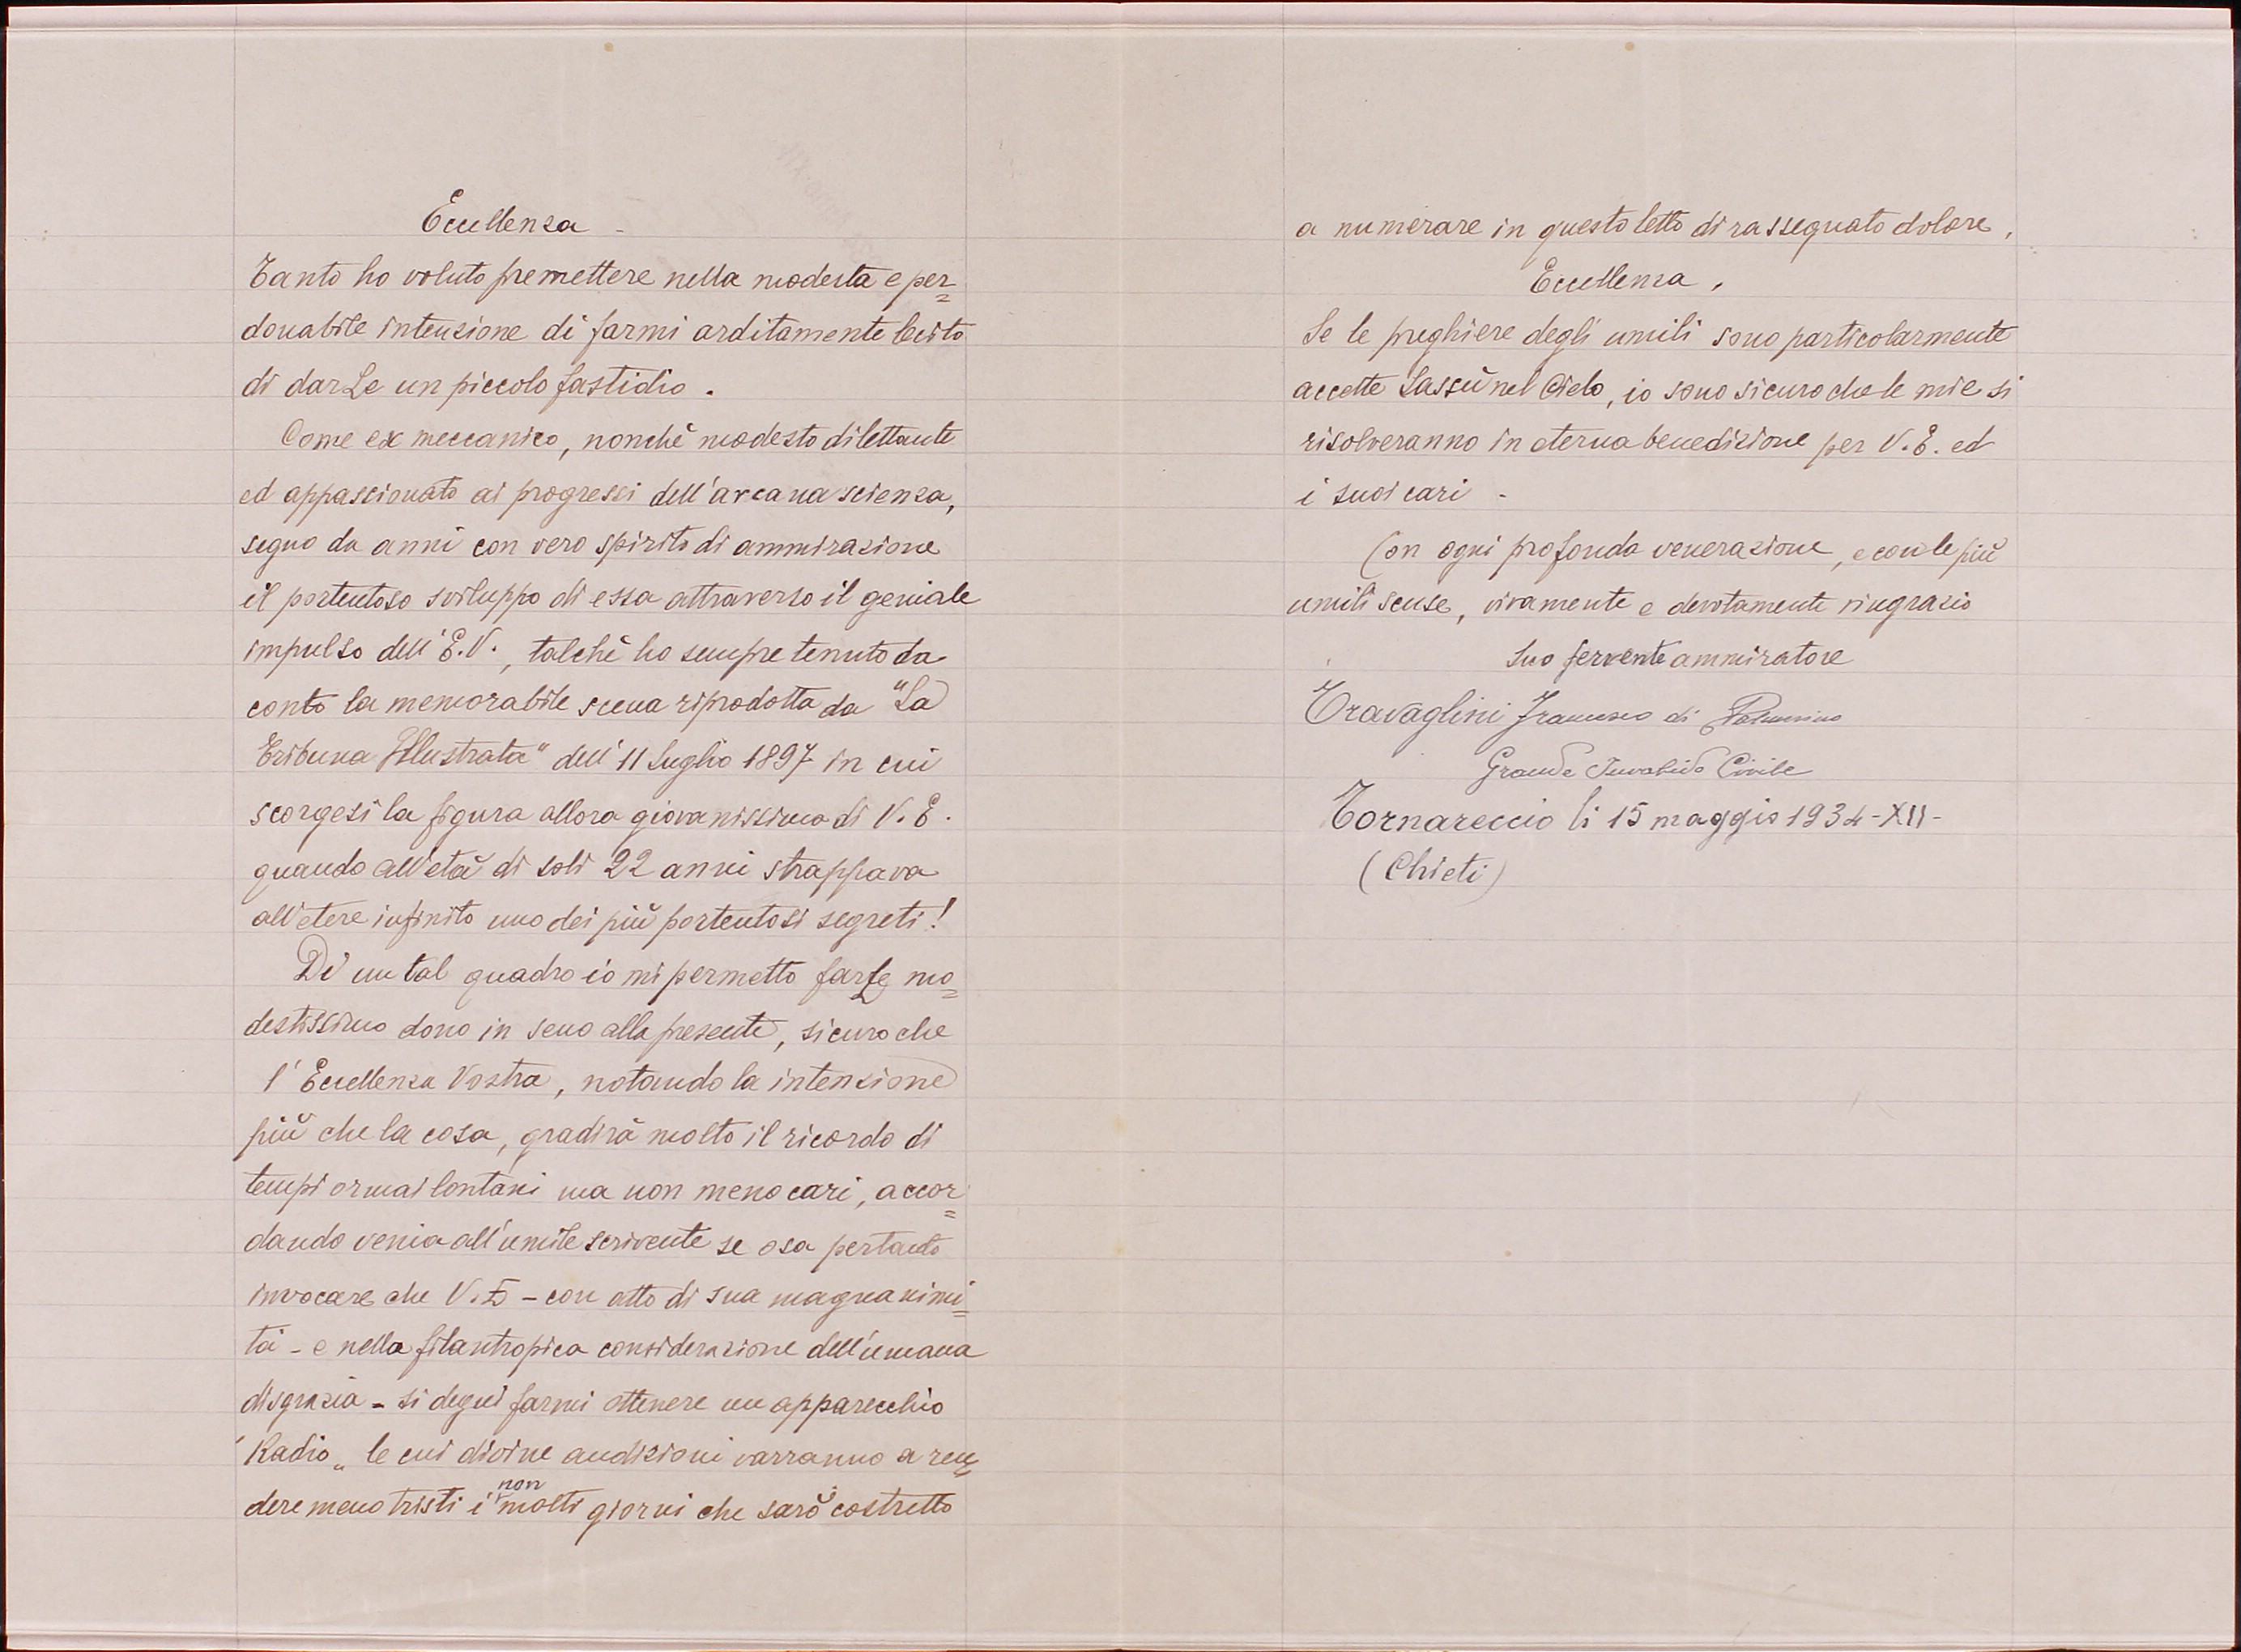 Eccellenza -
Tanto ho voluto premettere nella modesta e per=
donabile intenzione di farmi arditamente lecito
di darLe un piccolo fastidio.
Come ex meccanico, nonchè modesto dilettante
ed appassionato ai progressi dell'arcana scienza,
seguo da anni con vero spirito di ammirazione
il portentoso sviluppo di essa attraverso il geniale
impulso dell'E.V., talchè ho sempre tenuto da
conto la memorabile scena riprodotta da "La
Tribuna Illustrata" dell'11 luglio 1897 in cui
scorgesi la figura allora giovanissima di V.E.
quando all'età di soli 22 anni strappava
all'etere infinito uno dei più portentosi segreti!
Di un tal quadro io mi permetto farLe mo=
destissimo dono in seno alla presente, sicuro che
l'Eccellenza Vostra, notando la intenzione
più che la cosa, gradirà molto il ricordo di
tempi ormai lontani ma non meno cari, accor=
dando venia all'umile scrivente se osa pertanto
invocare che V.E - con atto di sua magnanimi=
tà - e nella filantropica considerazione dell'umana
disgrazia - si degni farmi ottenere un apparecchio
"Radio„ le cui divine audizioni varranno a ren=
dere meno tristi i non molti giorni che sarò costretto
a numerare in questo letto di rassegnato dolore,
Eccellenza,
Se le preghiere degli umili sono particolarmente
accette Lassù nel Cielo, io sono sicuro che le mie si
risolveranno in eterna benedizione per V.E. ed
i suoi cari -
Con ogni profonda venerazione, e con le più
umili scuse, vivamente e devotamente ringrazio
Suo fervente ammiratore
Travaglini Francesco di
Grande Invalido Civile
Tornareccio li 15 maggio 1934-XII-
(Chieti)